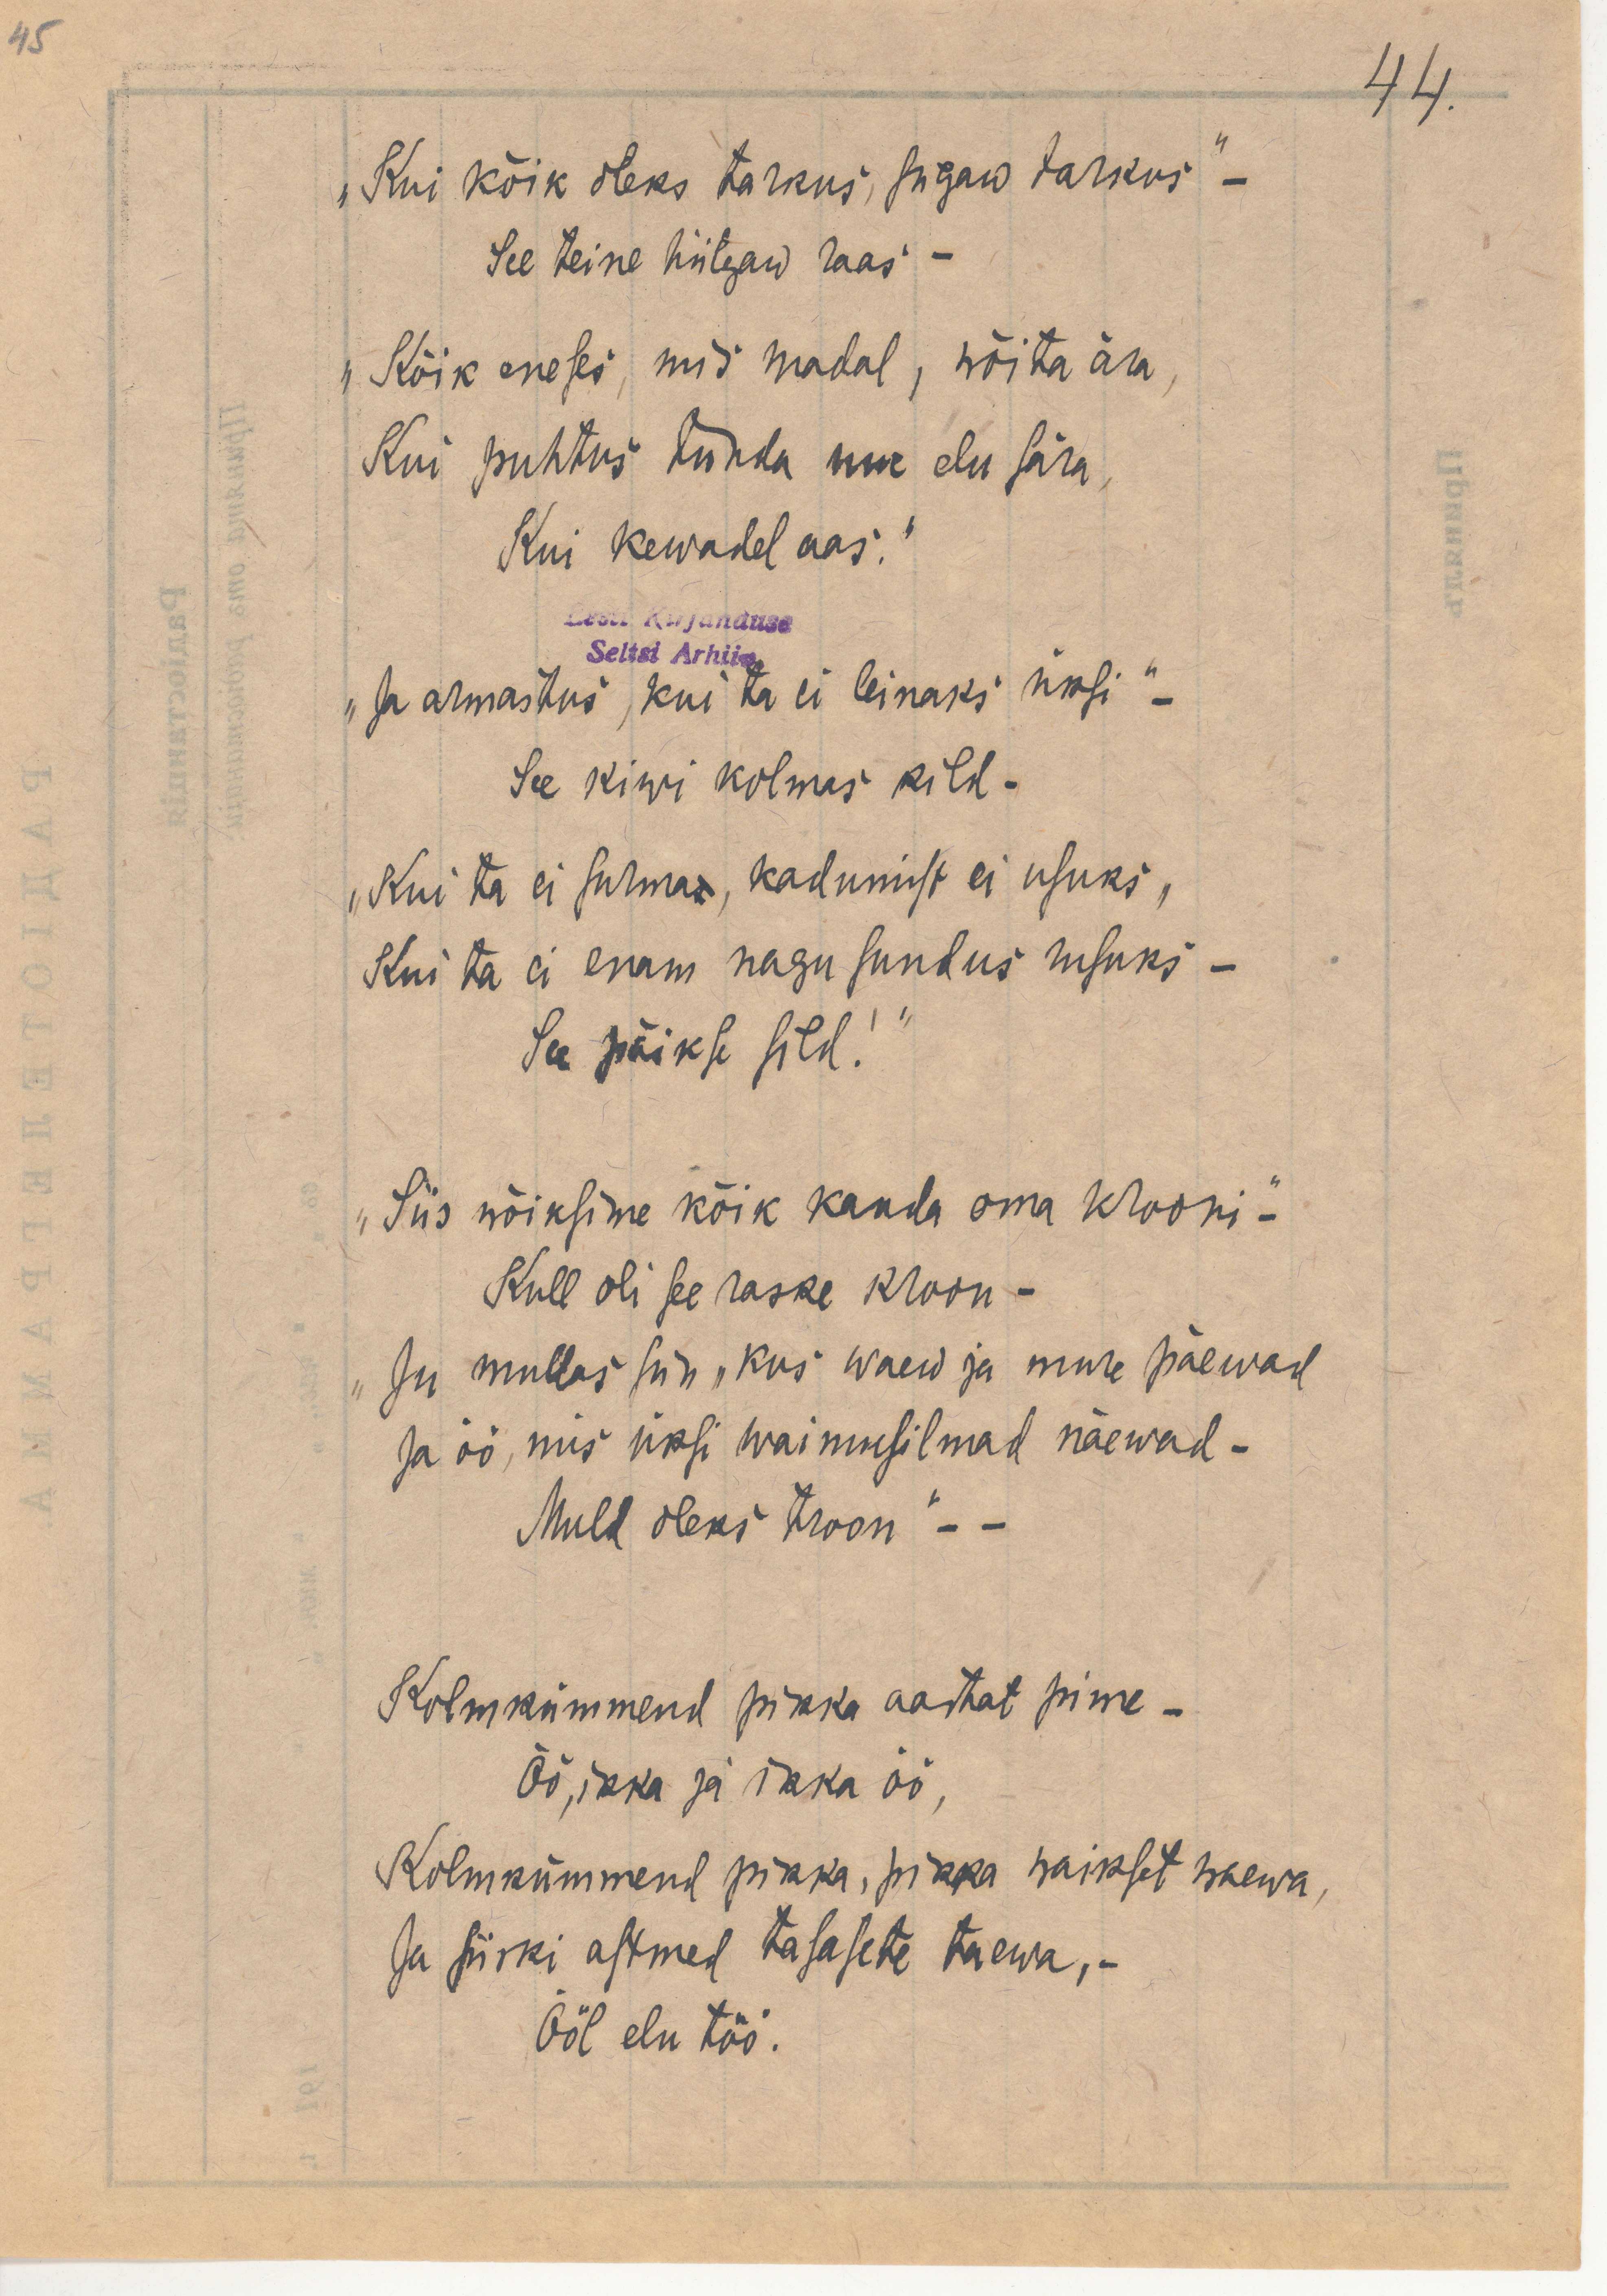 45
44.
„Kui kõik oleks tarkus, sügaw tarkus“ –
See teine hiilgaw raas –
„Kõik eneses, mis madal, wõita ära,
Kui puhtus tunda uue elu sära,
Kui kewadel aas.“
Eesti Kirjanduse
Seltsi Arhiiv
„Ja armastus, kui ta ei leinaks üksi“ –
See kiwi kolmas kild –
„Kui ta ei surma, kadumist ei usuks,
Kui ta ei enam nagu sundus rusuks –
See päikse sild!“
„Siis wõiksime kõik kanda oma krooni“ –
Kull oli see raske kroon –
„Ju mullas siin, kus waew ja mure päewad
Ja öö, mis üksi waimusilmad näewad –
Muld oleks troon“ – –
Kolmkümmend pikka aastat pime –
Öö, ikka ja ikka öö,
Kolmkümmend pikka, pikka waikset waewa,
Ja siiski astmed tasasete taewa, –
Ööl elu töö.
РАДІОТЕЛЕГРАММА
Радіостанція
Принята отъ радіостанціи
Принятъ
191 г.